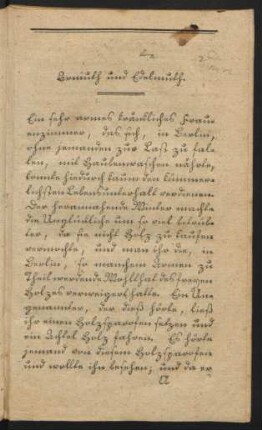 Armuth und Edelmuth.
Ein sehr armes kränkliches Frau-
enzimmer, das sich, in Berlin,
ohne jemanden zur Last zu fal-
len, mit Haubenwaschen nährte,
konnte hiedurch kaum den kümmer-
lichsten Lebensunterhalt verdienen.
Der herannahende Winter machte
die Unglückliche um so viel betrüb-
ter, da sie nicht Holz zu kaufen
vermochte, und man ihr die, in
Berlin, so manchem Armen zu
Theil werdende Wohlthat des freyen
Holzes verweigert hatte. Ein Un-
genannter, der dieß hörte, ließ
ihr einen Holzsparofen setzen und
ein Achtel Holz fahren. Es hörte
jemand von diesem Holzsparofen
und wollte ihn besehen; und da er